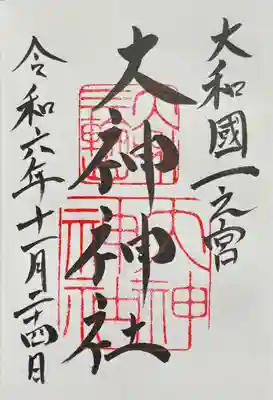 大和國一之宮
大神神社
令和六年十一月二十四日
大神
神社